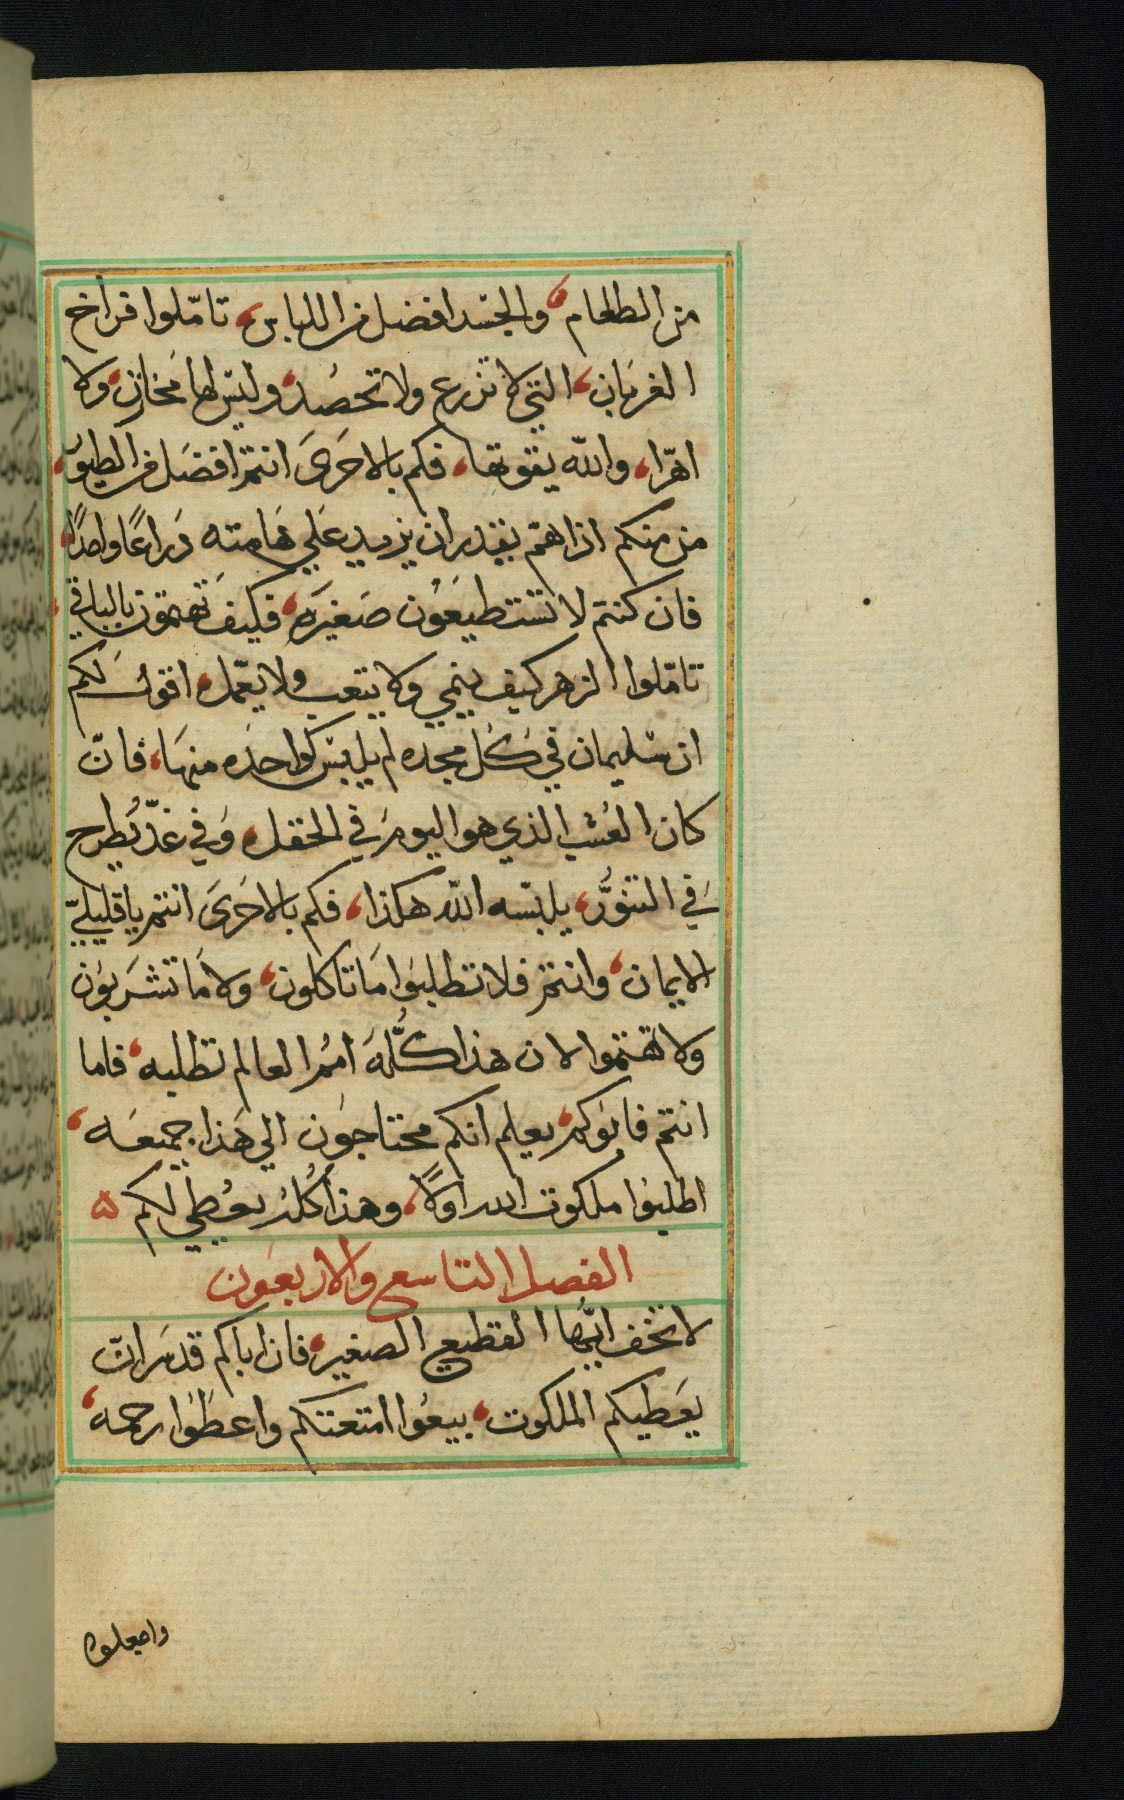 من الطعام، والجسد افضل من اللباس، تامّلوا فراخ
الغربان، التي لا تزرع ولا تحصد، وليس لها مخازن، ولا
اهرا، والله يقوتها، فكم بالاحرَى انتم افضل من الطيور،
من منكم اذا هتم يقدر ان يزيد علي هَامته دراعًا واحدًا،
فان كنتم لا تستطيعون صغيره، فكيف تهتمون بالباقي،
تامّلوا الزهر كيف ينمي ولا يتعب ولا يعمل، اقول لكم
ان سليمان في كل مجده لم يلبس كواحده منها، فانّ
كان العُشب الذي هو اليوم في الحقل، وفي غدّ يُطرح
في التنور، يلبسه الله هكذا، فكم بالاحرَى انتم يا قليليّ
الايمان، وانتم فلا تطلبوا ما تاكلون، ولا ما تشربون
ولا تهتموا لان هذا كُلّه امم العالم تطلبه، فاما
انتم فابوكم، يعلم انكم محتاجون الي هَذا جميعَه،
اطلبوا ملكوت الله اولاً، وهذا كُله يعُطي لكم ه
الفصل التاسع والاربعون
لا تخف ايّها القطيع الصغير، فان اباكم قد سَر انّ
يعَطيكم الملكوت، بيعُوا امتعتكم واعطُوا رحمه،
واجعلوا